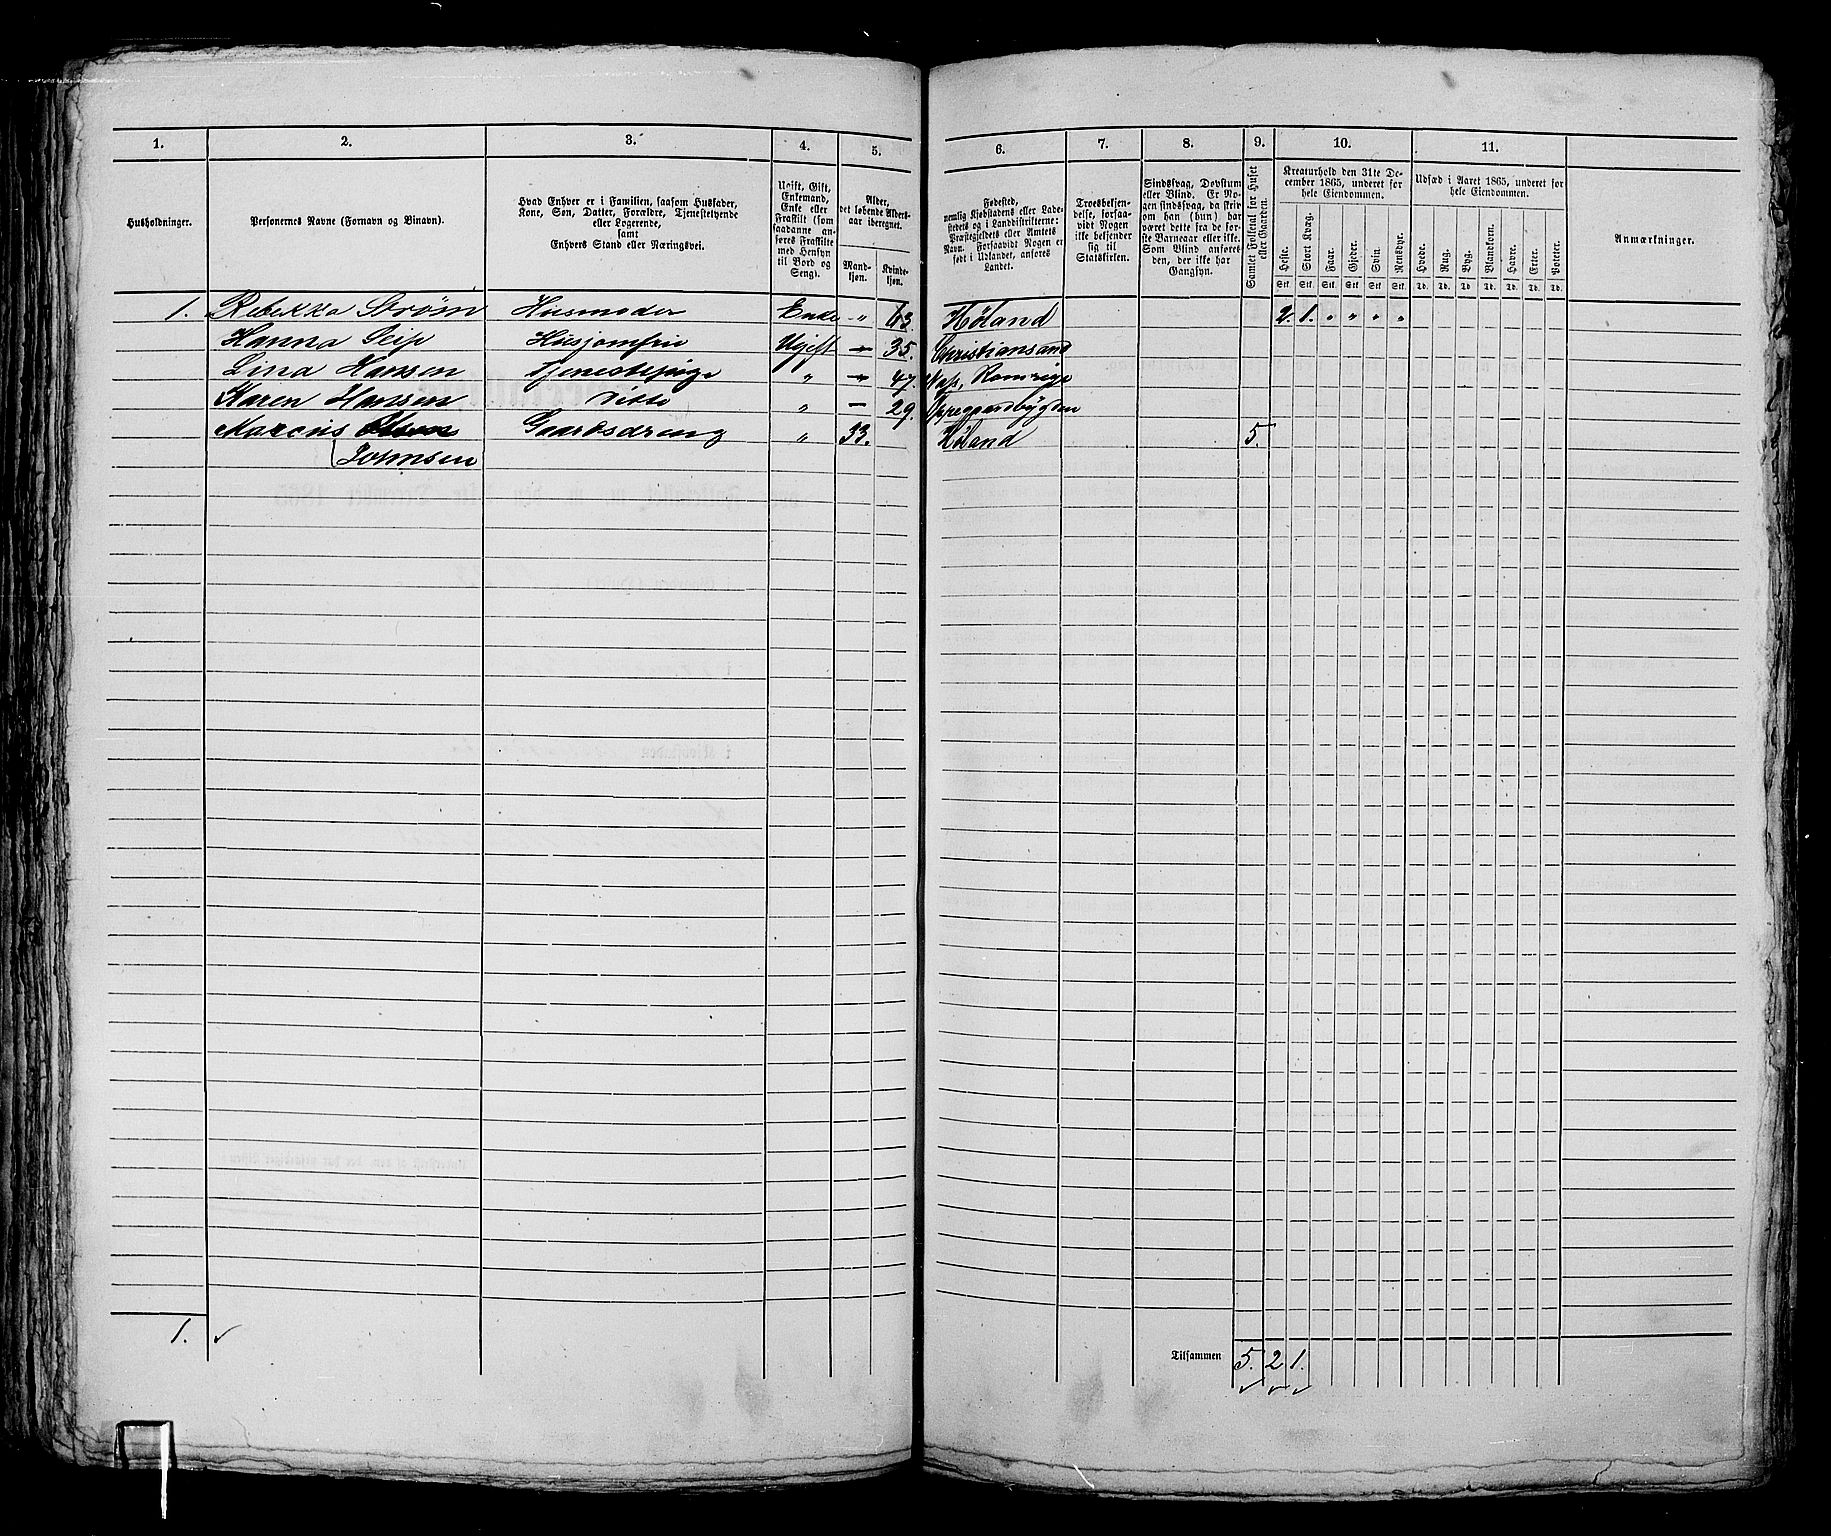 1. 2. 3. 4. 5. 6. 7. 8. 9. 10. 11.
Husholdninger.
Personernes Navne (Fornavn og Binavn).
Hvad Enhver er i Familien, saasom Husfader,
Kone, Søn, Datter, Forældre, Tjenestetyende
eller Logerende,
samt
Enhvers Stand eller Næringsvei.
Ugift, Gift,
Enkemand,
Enke eller
Fraskilt (som
saadanne an-
føres Fraskilte
med Hensyn
til Bord og
Seng).
Alder,
det løbende Alders-
aar iberegnet.
Mand-
kjøn.
Kvinde-
kjøn.
Fødested,
nemlig Kjøbstadens eller Lade-
stedets og i Landdistrikterne:
Præstegjeldets eller Amtets
Navn. Forsaavidt Nogen er
født i Udlandet, anføres
Landet.
Troesbekjen-
delse, forsaa-
vidt Nogen
ikke bekjender
sig til
Statskirken.
Sindssvag, Døvstum
eller Blind. Er No-
gen sindssvag, da skriv
om han (hun) har
været dette fra de før-
ste Barneaar eller ikke.
Som Blind anføres
den, der ikke har
Gangsyn.
Samlet Folketal for Huset
eller Gaarden.
Kreaturhold den 31te De-
cember 1865, underet for
hele Eiendommen.
Heste. Stort Kvæg. Faar. Gjeder. Svin. Rensdyr.
Stk. Stk. Stk. Stk. Stk. Stk.
Udsæd i Aaret 1865, underet for
hele Eiendommen.
Hvede. Rug. Byg. Blandkorn. Havre. Erter. Poteter.
Td. Td. Td. Td. Td. Td. Td.
Anmærkninger.
1. Rebekka Strøm Husmoder Enke „ 43. Høland 2. 1. „ „ „ „
Hanna Husjomfru Ugift — 35. Christiansand
Lina Hansen Tjenestepige „ — 47. Næs, Romerige
Karen Hansen Ditto „ — 29. Oppegaardbygden
Marcus Olsen Gaardsdreng „ 33. Høland 5.
(Johnsen
1. ✓
Tilsammen 5. 2 1.
✓ ✓ ✓